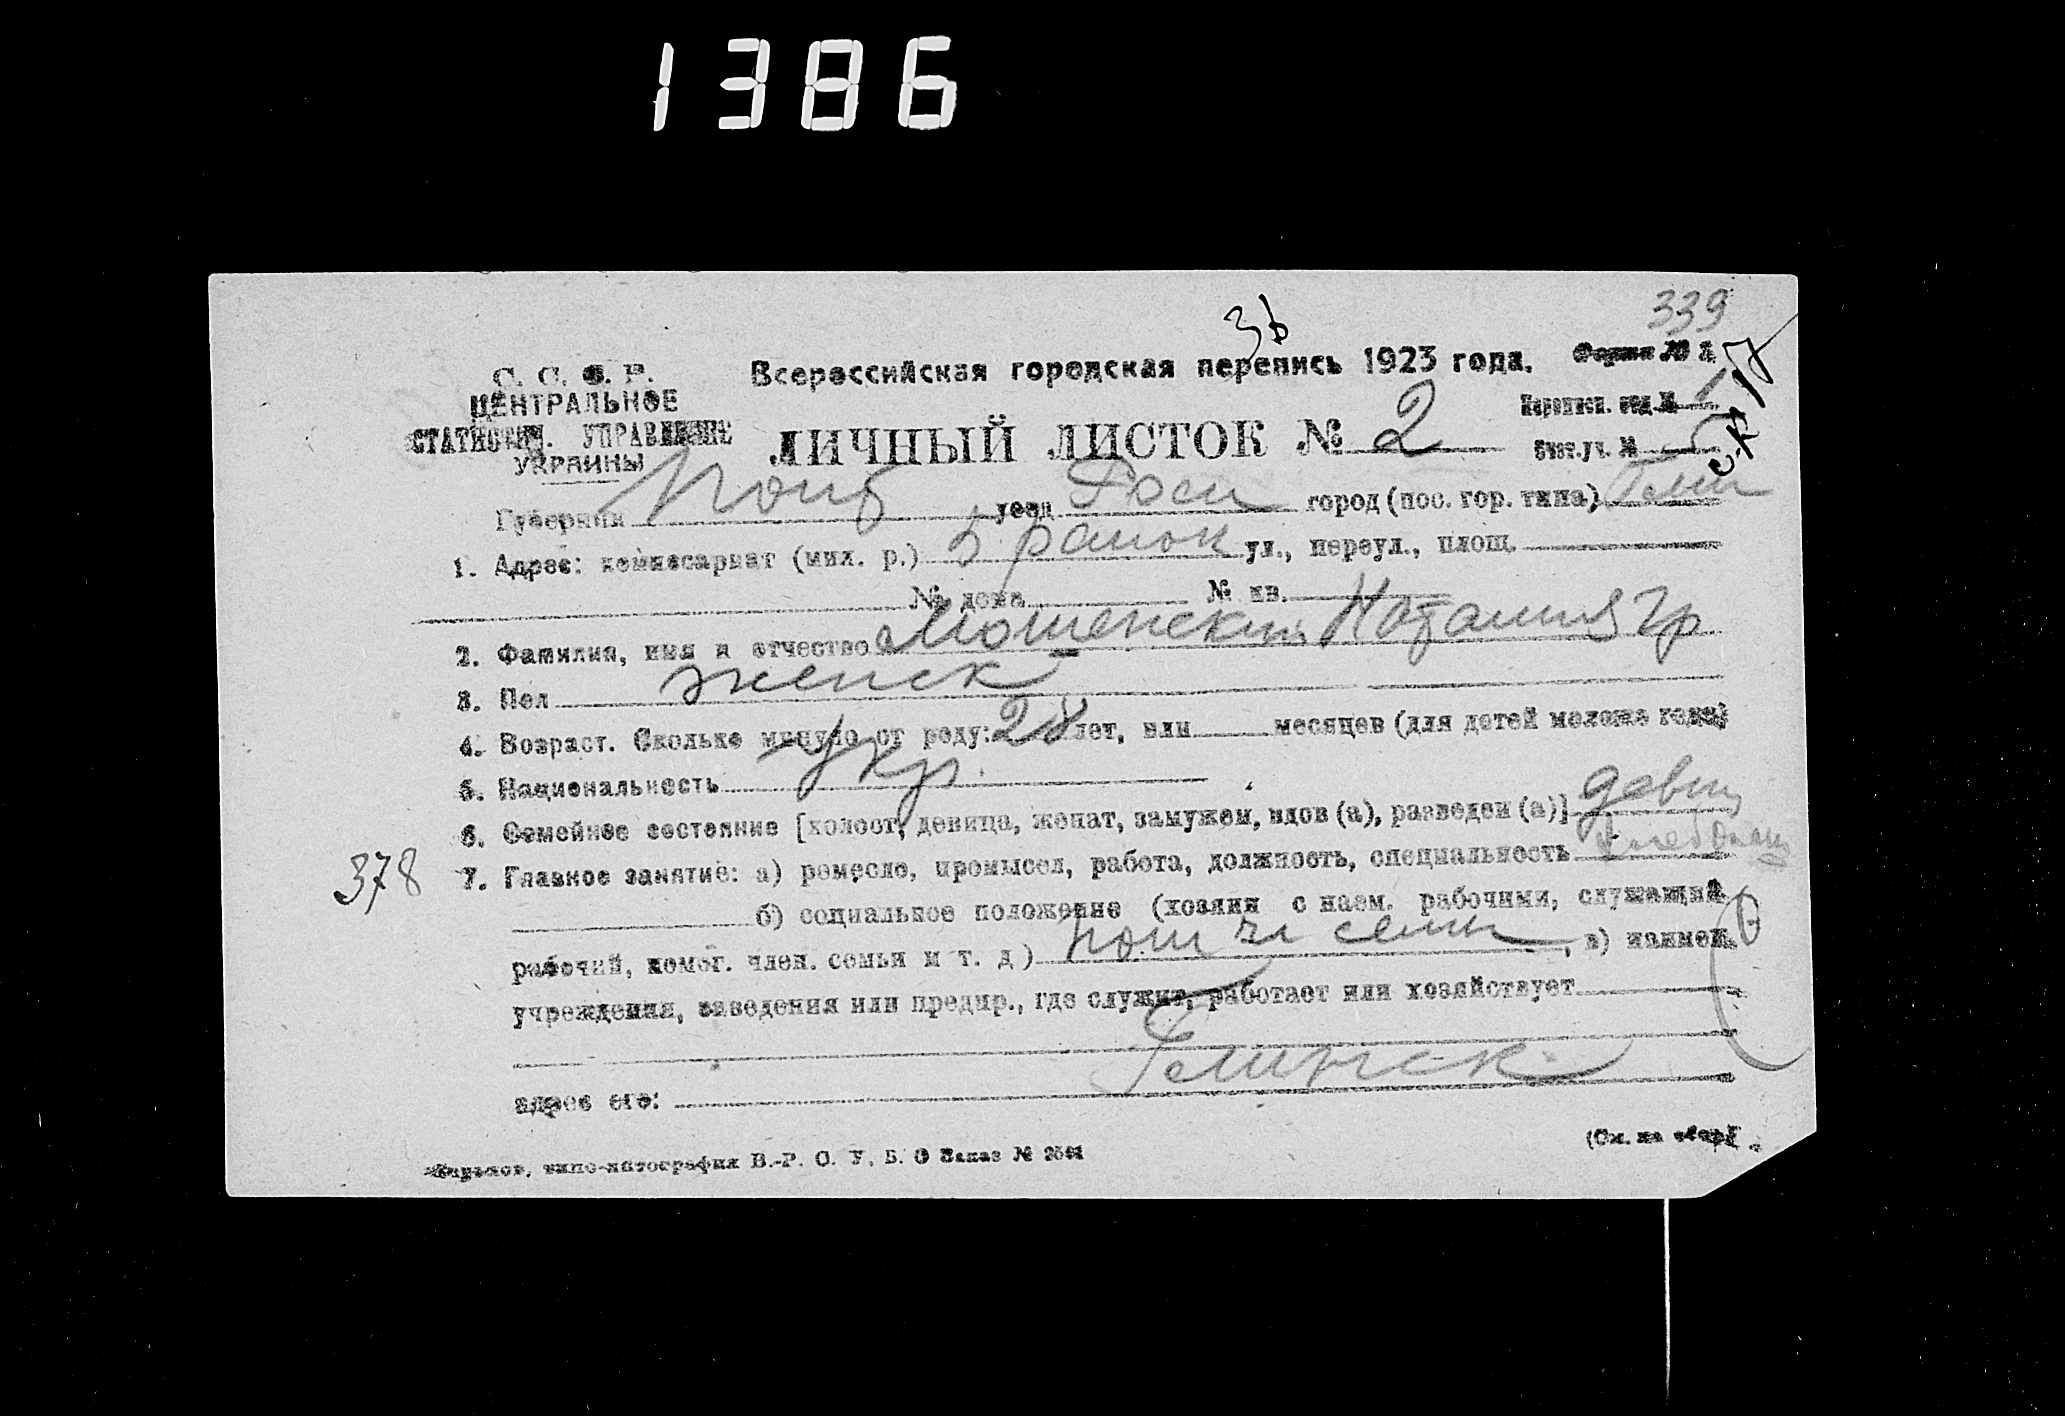 1386
339
36
С. С. С. Р.
ЦЕНТРАЛЬНОЕ
СТАТИСТИЧ. УПРАВЛЕНИЕ
УКРАИНЫ
Всероссийская городская перепись 1923 года.
Форма № 2
ЛИЧНЫЙ ЛИСТОК № 2
Переписн. отд. № 1
Счет. уч. №
Губерния Полт уезд город (пос. гор. типа)
1. Адрес: комиссариат (мил. р.) 5 район ул., переул., площ.
№ дома № кв.
2. Фамилия, имя и отчество Мошенский Наталия Гр
3. Пол женск
4. Возраст. Сколько минуло от роду: 28 лет, или месяцев (для детей моложе года)
5. Национальность укр.
6. Семейное состояние [холост, девица, женат, замужем, вдов (а), разведен (а)] девиц
378
7. Главное занятие: а) ремесло, промысел, работа, должность, специальность
б) социальное положение (хозяин с наем. рабочими, служащий
рабочий, помог. член. семьи и т. д) пом чл семи, в) наимен.
учреждения, заведения или предпр., где служит, работает или хозяйствует
адрес его: Глинск
(См. на обор.)
Харьков, типо-литография В.-Р. О. У. В. О Заказ №